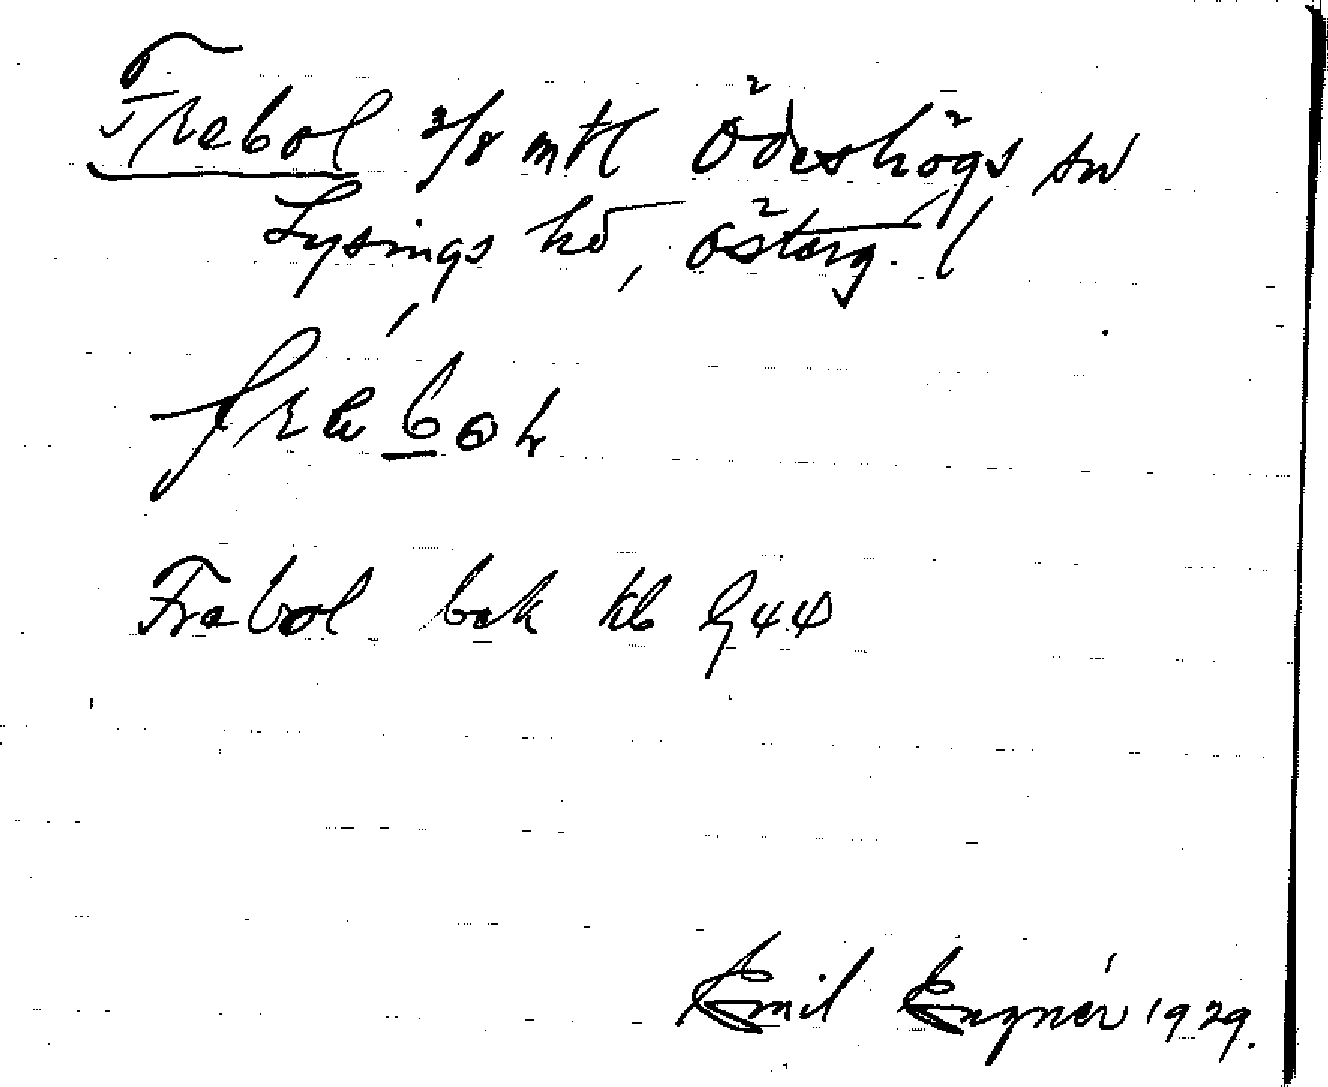 Frebol 3/8 mtl Ödeshögs sn
Lysings hd, Österg. l
Frebol bek kb
Emil Engnér 1929.